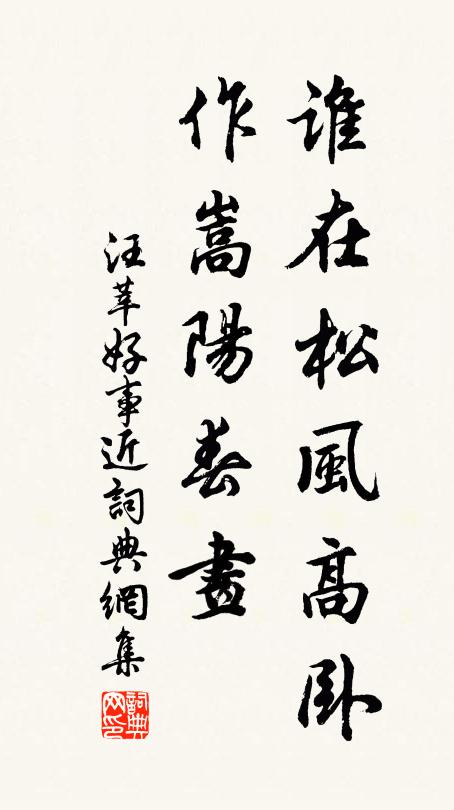 誰在松風高卧
作嵩陽春畫
汪莘好事近詞典網集
詞典
网印